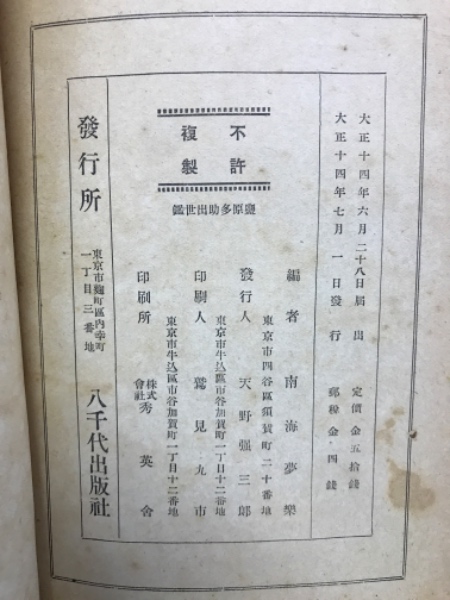 大正十四年六月二十八日届出
定價金五拾錢
大正十四年七月一日發行
郵税金四錢
不許
複製
鹽原多助出世鑑
編者 南海夢樂
東京市四谷區須賀町二十番地
發行人 天野强三郎
東京市牛込區市谷加賀町一丁目十二番地
印刷人 鷲見九市
東京市牛込區市谷加賀町一丁目十二番地
印刷所 株式會社 秀英舍
發行所
東京市麴町區內幸町
一丁目三番地
八千代出版社